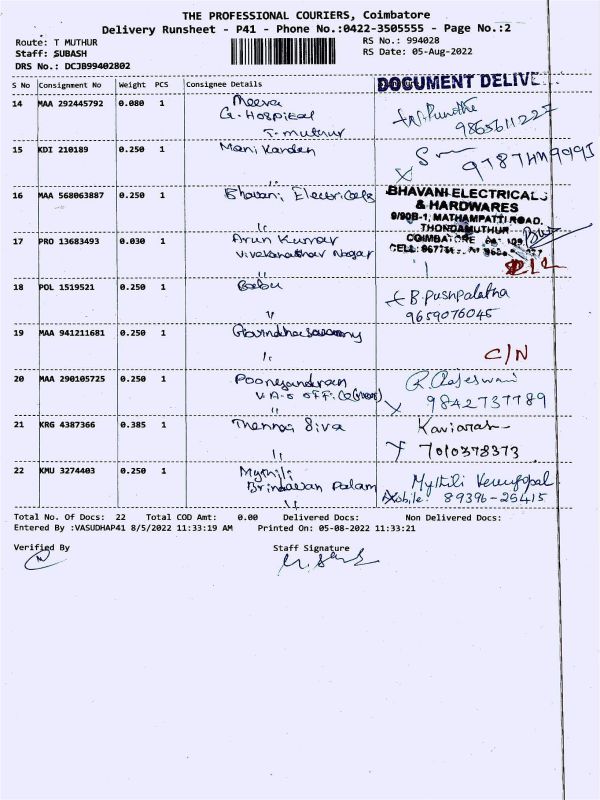 THE PROFESSIONAL COURIERS, Coimbatore
Delivery Runsheet - P41 - Phone No.:0422-3505555 - Page No.:2
Route: T MUTHUR RS No.: 994028
Staff: SUBASH RS Date: 05-Aug-2022
DRS No.: DCJB99402802
S No Consignment No Weight PCS Consignee Details
DOCUMENT DELIVE
14 MAA 292445792 0.080 1 Meera
G. Hospital
T. muthur
9865611227
15 KDI 210189 0.250 1 Mani kandan
16 MAA 568063887 0.250 1 Bhavani Electricals
BHAVANI ELECTRICALS
& HARDWARES
9/90B-1, MATHAMPATTI ROAD,
THONDAMUTHUR
17 PRO 13683493 0.030 1 Arun Kumar
Nagar
18 POL 1519521 0.250 1 Babu
B. Pushpalatha
9659076045
19 MAA 941211681 0.250 1
C/N
20 MAA 290105725 0.250 1
R. Rajeswari
9842737789
21 KRG 4387366 0.385 1 Thennai Siva
7010378373
22 KMU 3274403 0.250 1 Mythili
Brindavan Palam
Mythili Venugopal
Mobile: 89396-25415
Total No. Of Docs: 22 Total COD Amt: 0.00 Delivered Docs: Non Delivered Docs:
Entered By :VASUDHAP41 8/5/2022 11:33:19 AM Printed On: 05-08-2022 11:33:21
Verified By Staff Signature